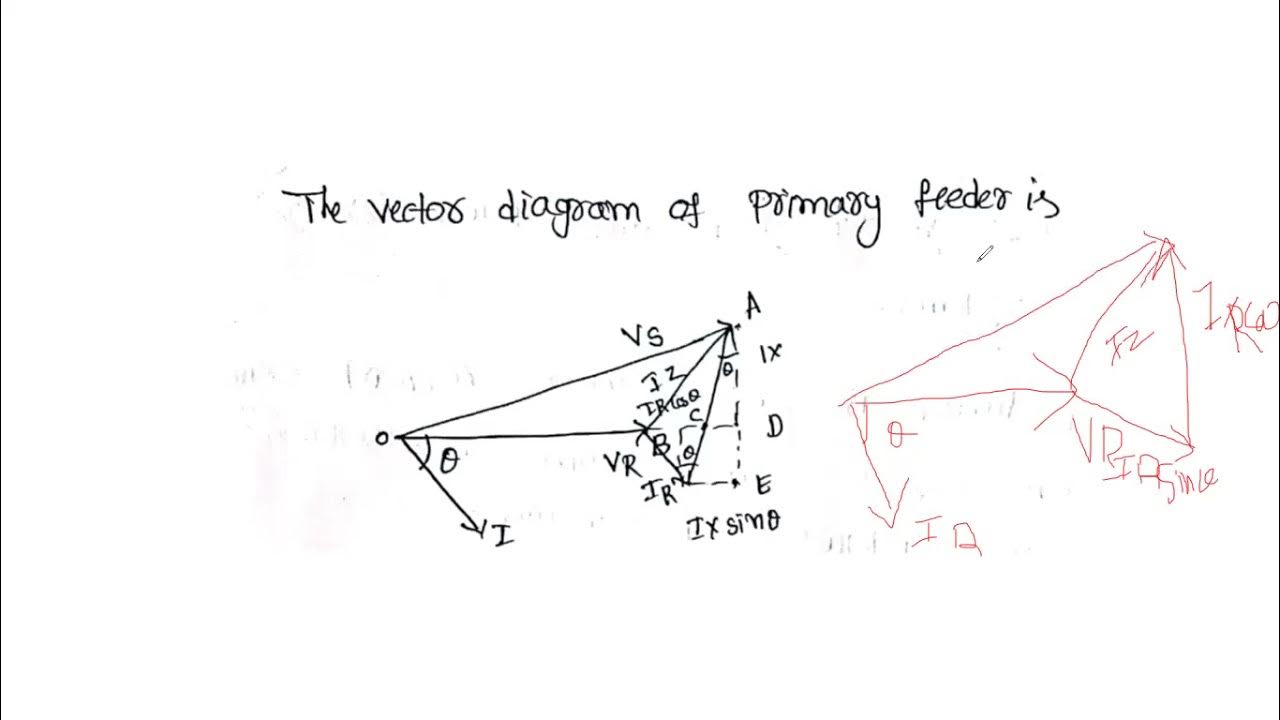 The vector diagram of primary feeder is
A
VS
IX
IZ
θ
IR cos θ
C
O
D
B
θ
VR
θ
IR
E
IX sin θ
I
IZ
θ
VR